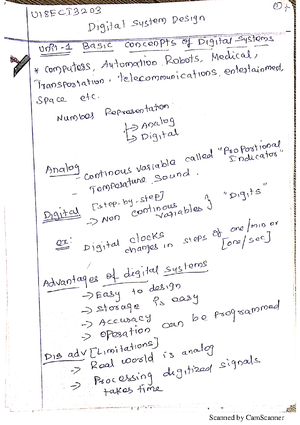 U18ECT3203
Digital System Design
Unit-1 Basic concenpts of Digital Systems
* Computers, Automation, Robots, Medical,
Transportation, Telecommunications, entertained,
Space etc.
Number Representation
→ Analog
→ Digital
Analog - Continous variable called "Propotional
Indicator"
- Temperature Sound.
Digital [step-by-step]
→ Non continous variables } "Digits"
ex: Digital clocks
changes in steps of one/min or
[one/sec]
Advantages of digital systems
→ Easy to design
→ Storage is easy
→ Accuracy
→ operation can be programmed
Dis adv [Limitations]
→ Real world is analog
→ Processing digitized signals
takes time
Scanned by CamScanner